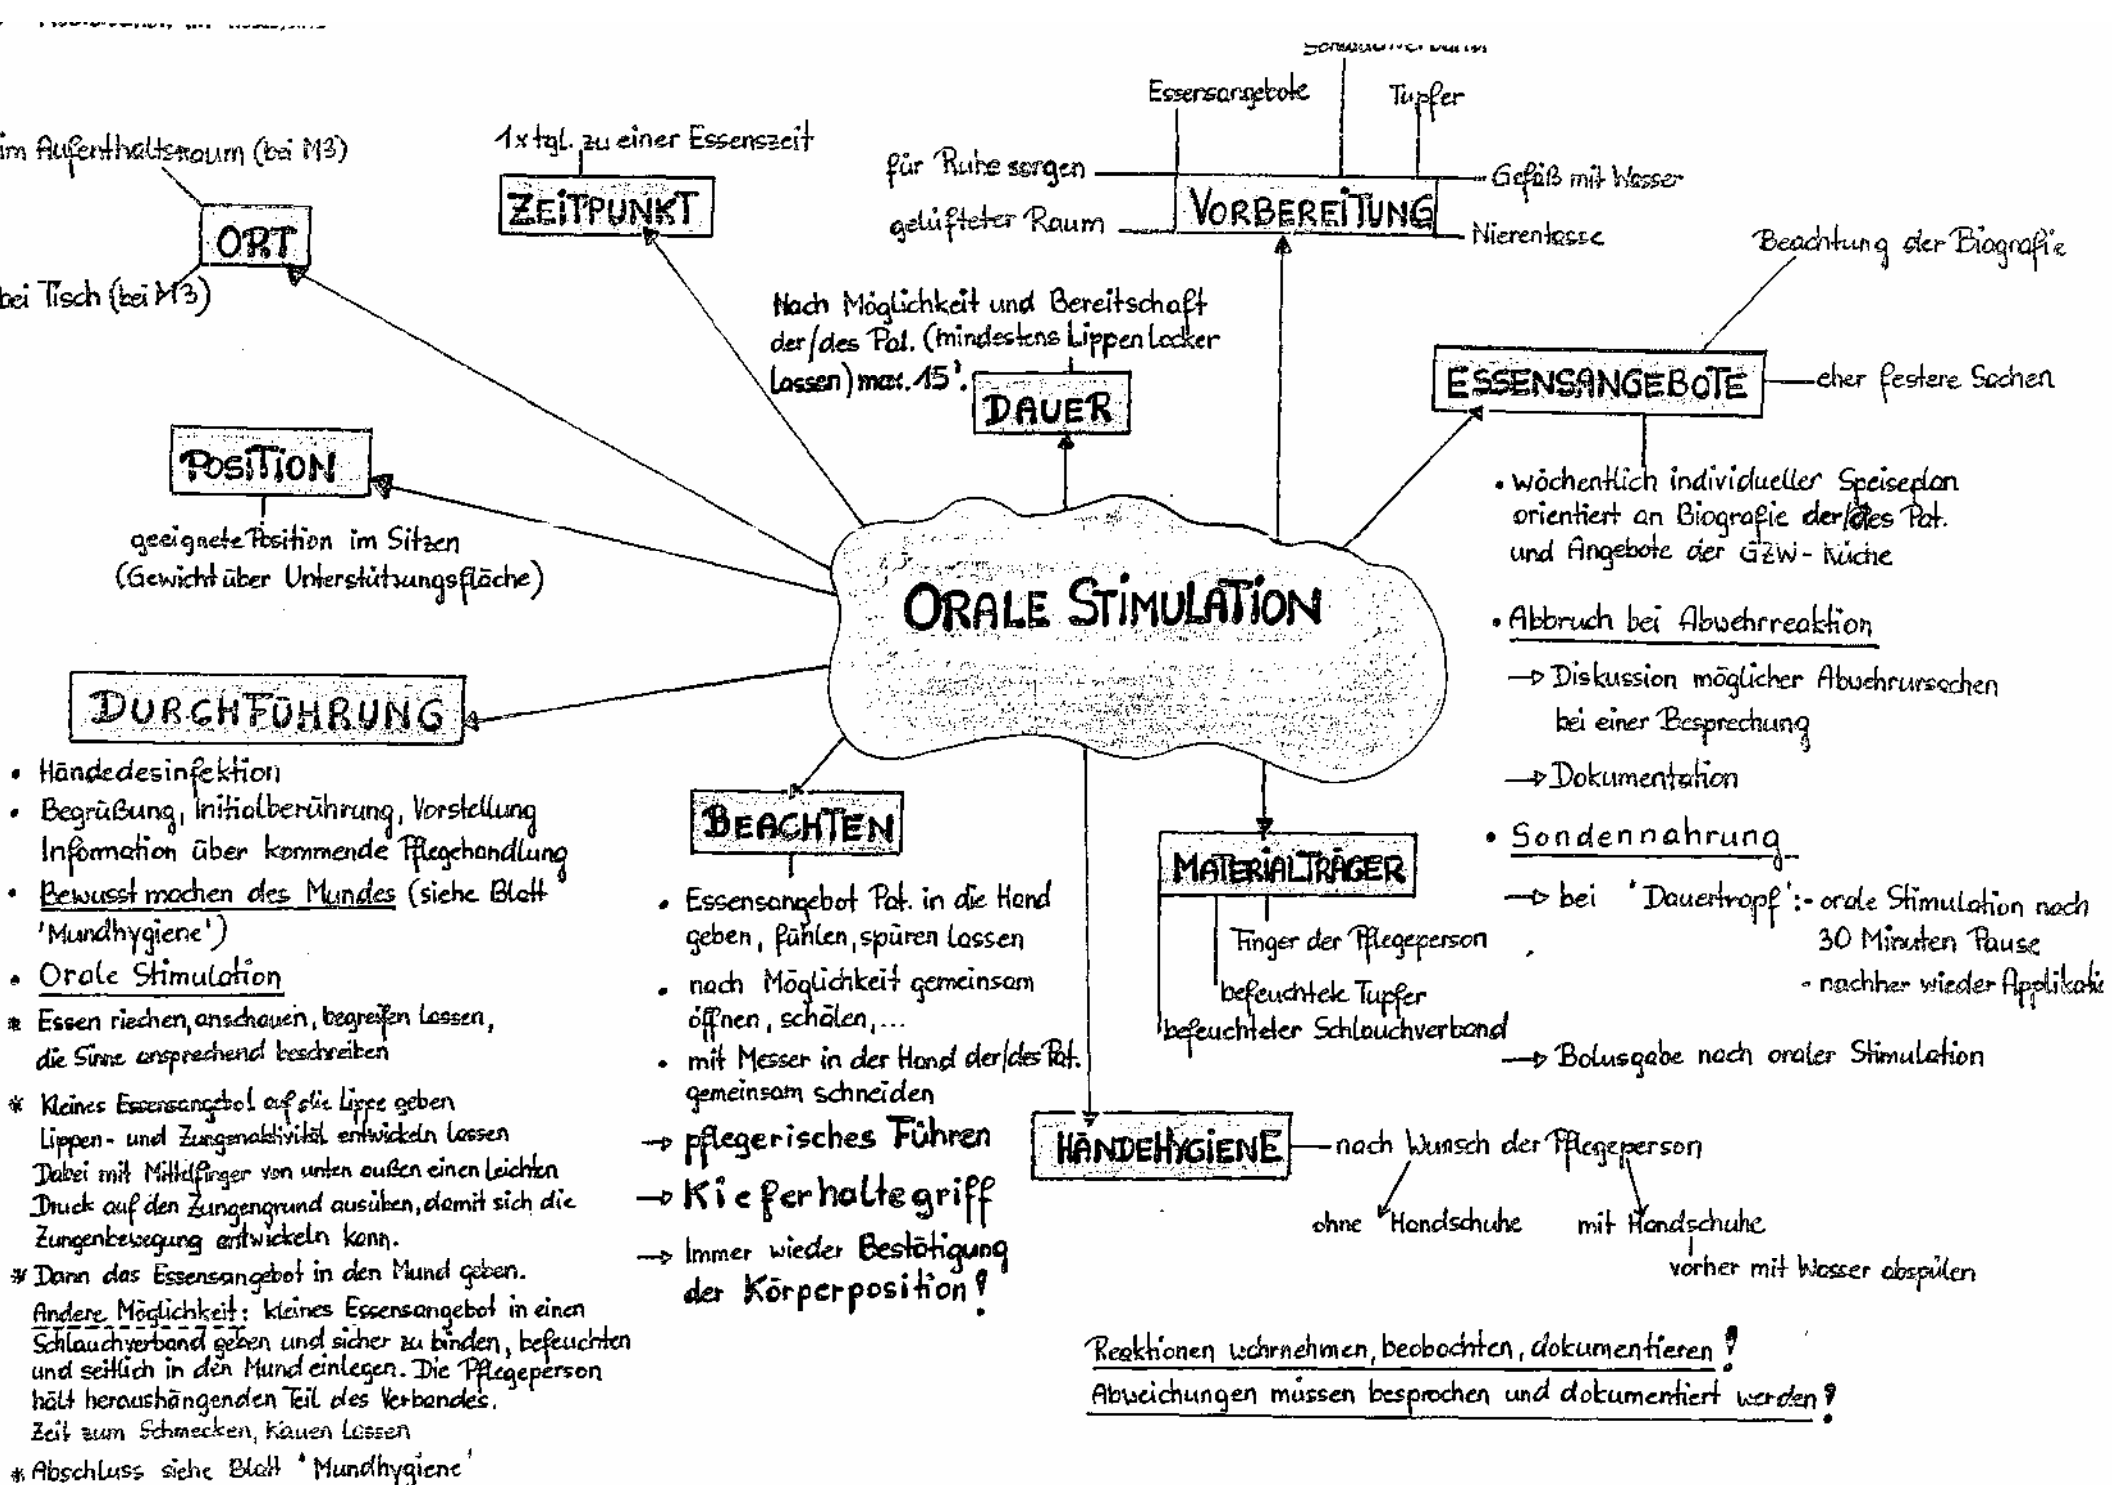 im Aufenthaltsraum (bei M3)
ORT
bei Tisch (bei M3)
1x tgl. zu einer Essenszeit
ZEITPUNKT
Essensangebote
Tupfer
für Ruhe sorgen
gelüfteter Raum
VORBEREITUNG
Gefäß mit Wasser
Nierentasse
Nach Möglichkeit und Bereitschaft
der/des Pat. (mindestens Lippen locker
lassen) max. 15'.
DAUER
Beachtung der Biografie
ESSENSANGEBOTE
eher festere Sachen
• wöchentlich individueller Speiseplan
orientiert an Biografie der/des Pat.
und Angebote der GZW-Küche
• Abbruch bei Abwehrreaktion
→ Diskussion möglicher Abwehrursachen
bei einer Besprechung
→ Dokumentation
• Sondennahrung
→ bei 'Dauertropf': - orale Stimulation nach
30 Minuten Pause
- nachher wieder Applikatio
→ Bolusgabe nach oraler Stimulation
POSITION
geeignete Position im Sitzen
(Gewicht über Unterstützungsfläche)
ORALE STIMULATION
DURCHFÜHRUNG
• Händedesinfektion
• Begrüßung, Initialberührung, Vorstellung
Information über kommende Pflegehandlung
• Bewusst machen des Mundes (siehe Blatt
'Mundhygiene')
• Orale Stimulation
* Essen riechen, anschauen, begreifen lassen,
die Sinne ansprechend beschreiben
* Kleines Essensangebot auf die Lippe geben
Lippen- und Zungenaktivität entwickeln lassen
Dabei mit Mittelfinger von unten außen einen leichten
Druck auf den Zungengrund ausüben, damit sich die
Zungenbewegung entwickeln kann.
* Dann das Essensangebot in den Mund geben.
Andere Möglichkeit: kleines Essensangebot in einen
Schlauchverband geben und sicher zu binden, befeuchten
und seitlich in den Mund einlegen. Die Pflegeperson
hält heraushängenden Teil des Verbandes.
Zeit zum Schmecken, Kauen lassen
* Abschluss siehe Blatt 'Mundhygiene'
BEACHTEN
• Essensangebot Pat. in die Hand
geben, fühlen, spüren lassen
• nach Möglichkeit gemeinsam
öffnen, schälen,...
• mit Messer in der Hand der/des Pat.
gemeinsam schneiden
→ pflegerisches Führen
→ Kieferhaltegriff
→ Immer wieder Bestätigung
der Körperposition!
MATERIALTRÄGER
Finger der Pflegeperson
befeuchtete Tupfer
befeuchteter Schlauchverband
HÄNDEHYGIENE
nach Wunsch der Pflegeperson
ohne Handschuhe
mit Handschuhe
vorher mit Wasser abspülen
Reaktionen wahrnehmen, beobachten, dokumentieren!
Abweichungen müssen besprochen und dokumentiert werden!